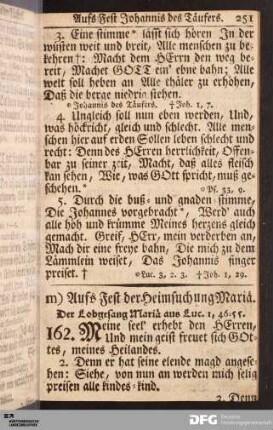 Aufs Fest Johannis des Täufers. 251
3. Eine stimme* lässt sich hören In der
wüsten weit und breit, Alle menschen zu be-
kehren†: Macht dem HErrn den weg be-
reit, Machet GOTT ein' ebne bahn; Alle
welt soll heben an Alle thäler zu erhöhen,
Daß die berge niedrig stehen.
* Johannis des Täufers. † Joh. 1, 7.
4. Ungleich soll nun eben werden, Und,
was höckricht, gleich und schlecht. Alle men-
schen hier auf erden Sollen leben schlecht und
recht: Denn des HErren herrlichkeit, Offen-
bar zu seiner zeit, Macht, daß alles fleisch
kan sehen, Wie, was GOtt spricht, muß ge-
schehen.* * Ps. 33, 9.
5. Durch die buß- und gnaden-stimme,
Die Johannes vorgebracht*, Werd' auch
alle höh und krümme Meines herzens gleich
gemacht. Greif, HErr, mein verderben an,
Mach dir eine freye bahn, Die mich zu dem
Lämmlein weiset, Das Johannis finger
preiset. † * Luc. 3, 2. 3. † Joh. 1, 29.
m) Aufs Fest der Heimsuchung Mariä.
Der Lobgesang Mariä aus Luc. 1, 46-55.
162. Meine seel' erhebt den HErren,
Und mein geist freuet sich GOt-
tes, meines Heilandes.
2. Denn er hat seine elende magd angese-
hen: Siehe, von nun an werden mich selig
preisen alle kindes-kind.
2. Denn
DFG